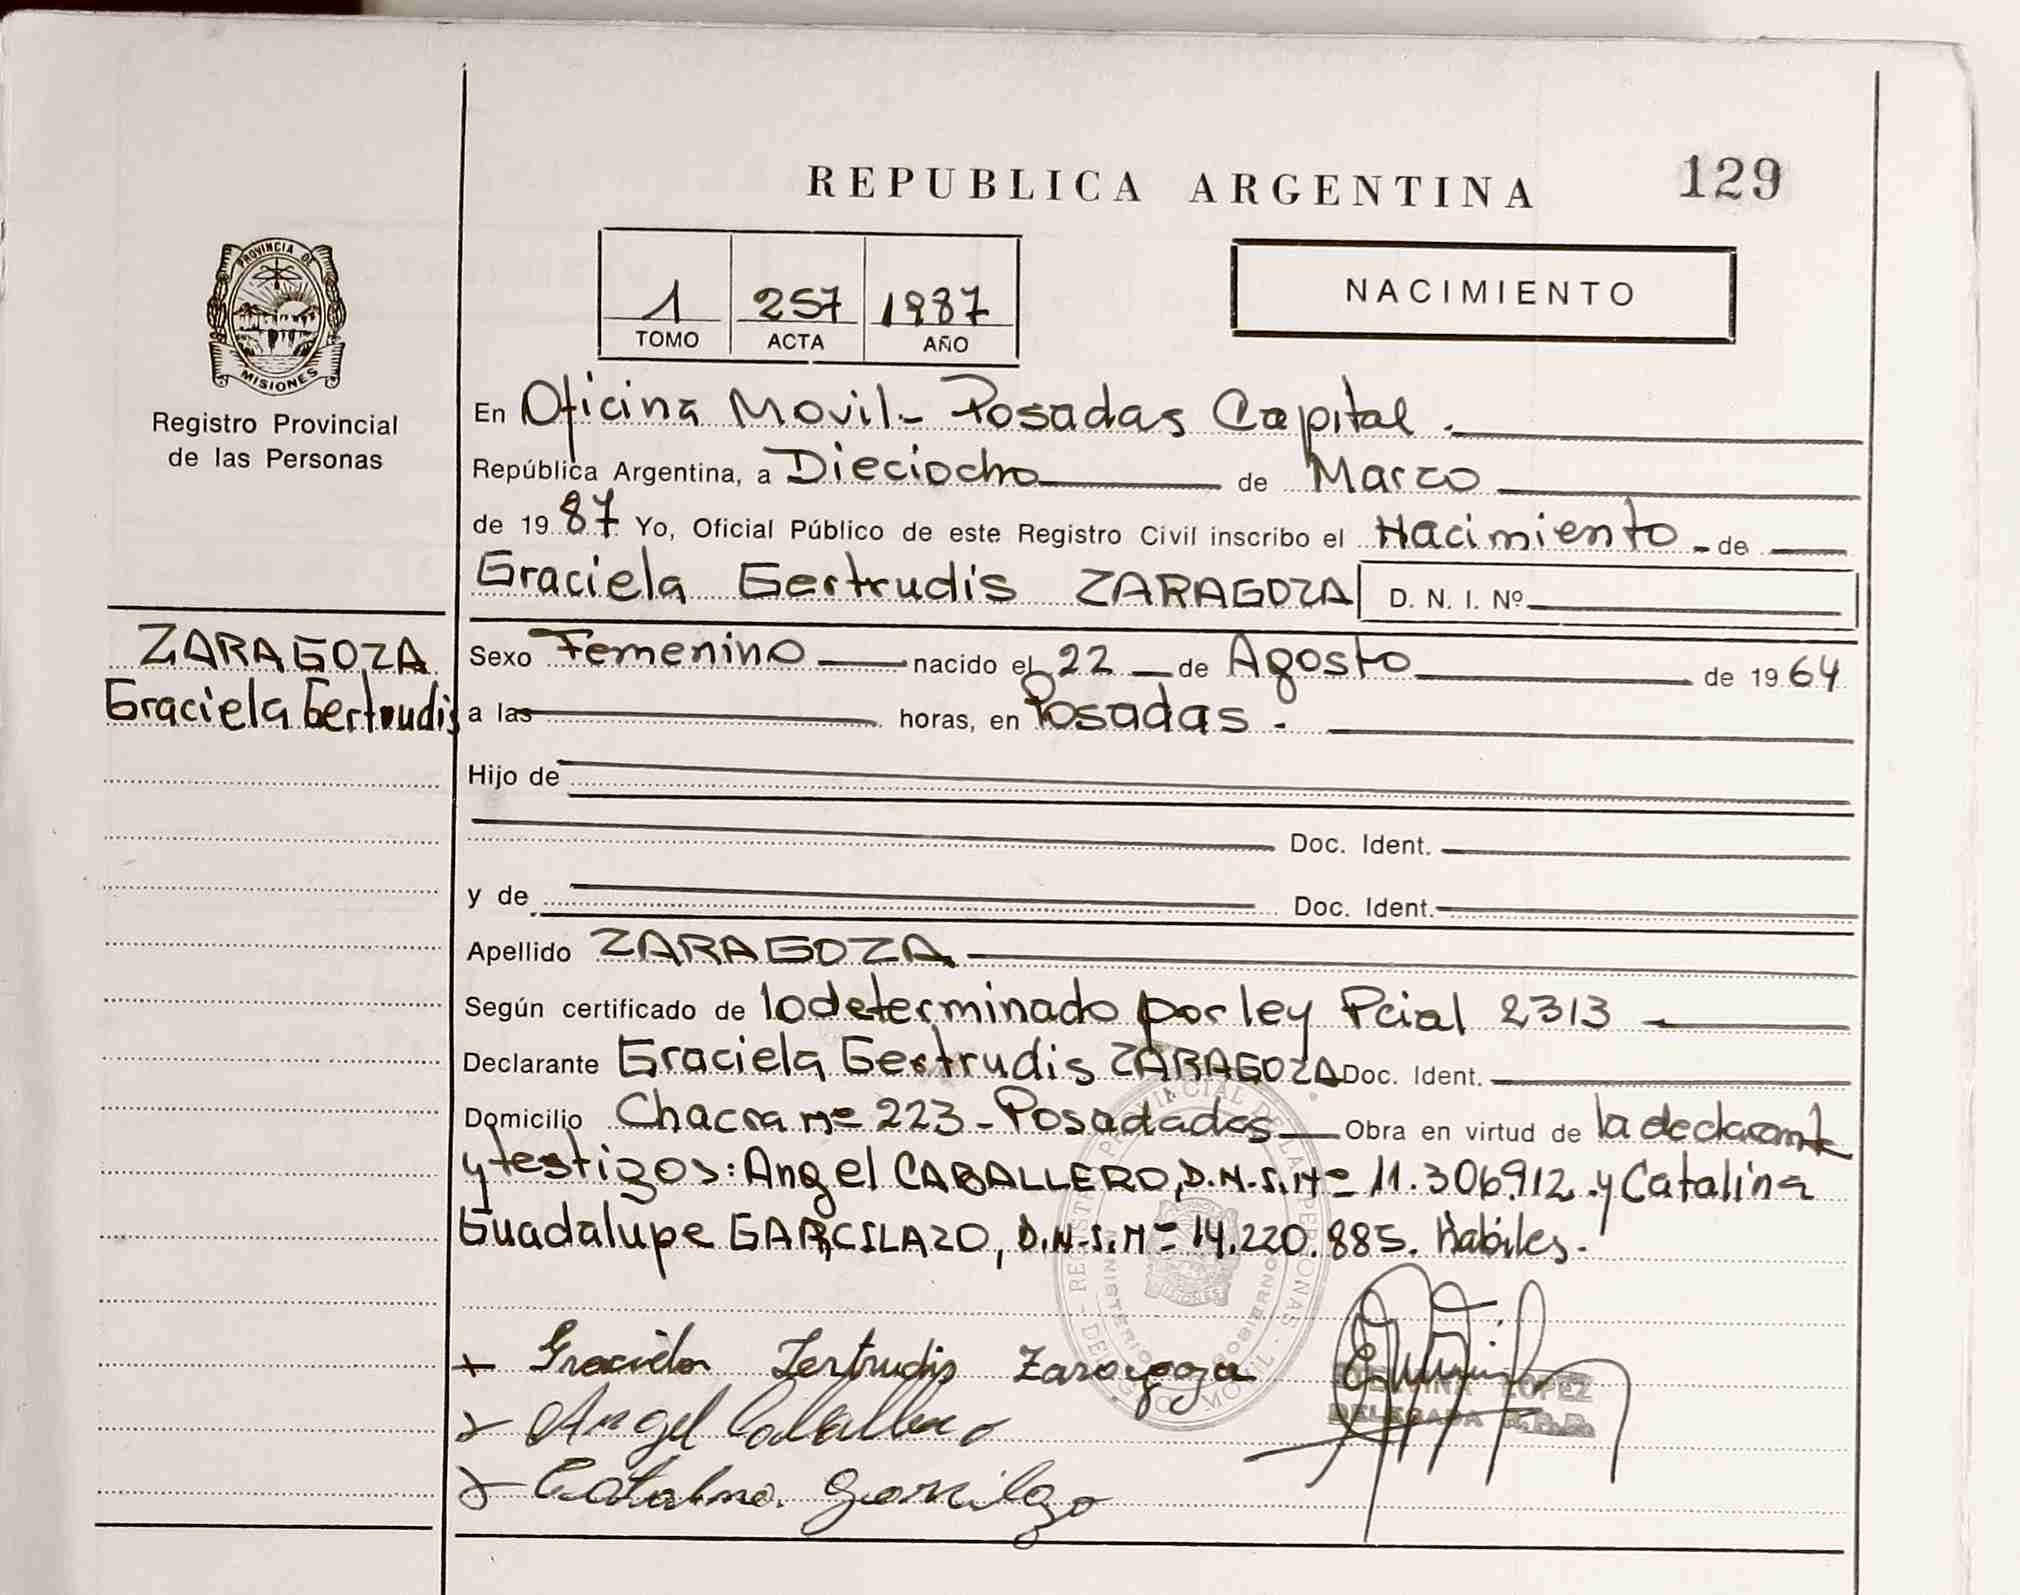 REPUBLICA ARGENTINA
129
PROVINCIA DE
MISIONES
Registro Provincial
de las Personas
1 257 1987
TOMO ACTA AÑO
NACIMIENTO
En Oficina Movil - Posadas Capital.
República Argentina, a Dieciocho de Marzo
de 1987 Yo, Oficial Público de este Registro Civil inscribo el Nacimiento - de
Graciela Gertrudis ZARAGOZA D. N. I. Nº
ZARAGOZA
Graciela Gertrudis
Sexo Femenino nacido el 22 de Agosto de 1964
a las horas, en Posadas.
Hijo de
Doc. Ident.
y de Doc. Ident.
Apellido ZARAGOZA
Según certificado de lo determinado por ley Pcial 2313
Declarante Graciela Gertrudis ZARAGOZA Doc. Ident.
Domicilio Chacra nº 223 - Posadadas Obra en virtud de la declarante
y testigos: Angel CABALLERO, D.N.I. Nº 11.306.912 y Catalina
Guadalupe GARCILAZO, D.N.I. Nº 14.220.885. Habiles.
Graciela Gertrudis Zaragoza
Angel Caballero
Catalina Garcilazo
LOPEZ
DELEGADA R.P.P.